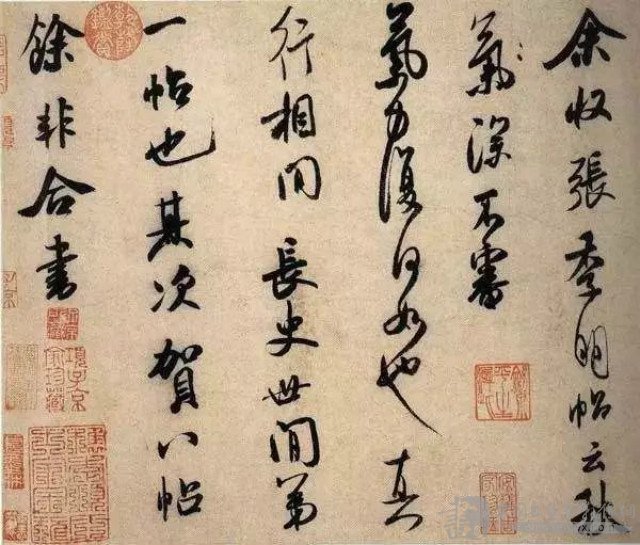 余收張季明帖云秋
氣深不審
氣力復何如也真
行相間長史世間第
一帖也其次賀八帖
餘非合書
項子京
家珍藏